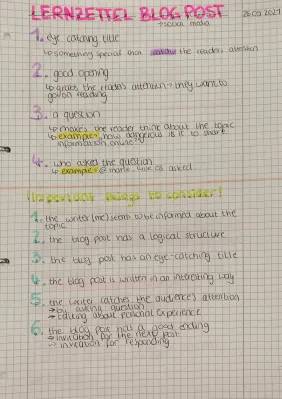 LERNZETTEL BLOG POST
→ social media
1. eye catching title
↳ something special that the readers attention
2. good opening
↳ grabs the readers attention → they want to
go on reading
3. a question
↳ makes the reader think about the topic
↳ example: how dangerous is it to share
information online?
4. who asked the question
↳ example: @marie_ asked
Important things to consider!
1. the writer (me) seem to be informed about the
topic
2. the blog post has a logical structure
3. the blog post has an eye-catching title
4. the blog post is written in an interesting way
5. the writer catches the audience's attention
→ by asking question
→ talking about personal experience
6. the blog post has a good ending
→ invitation for the next post
→ invitation for responding